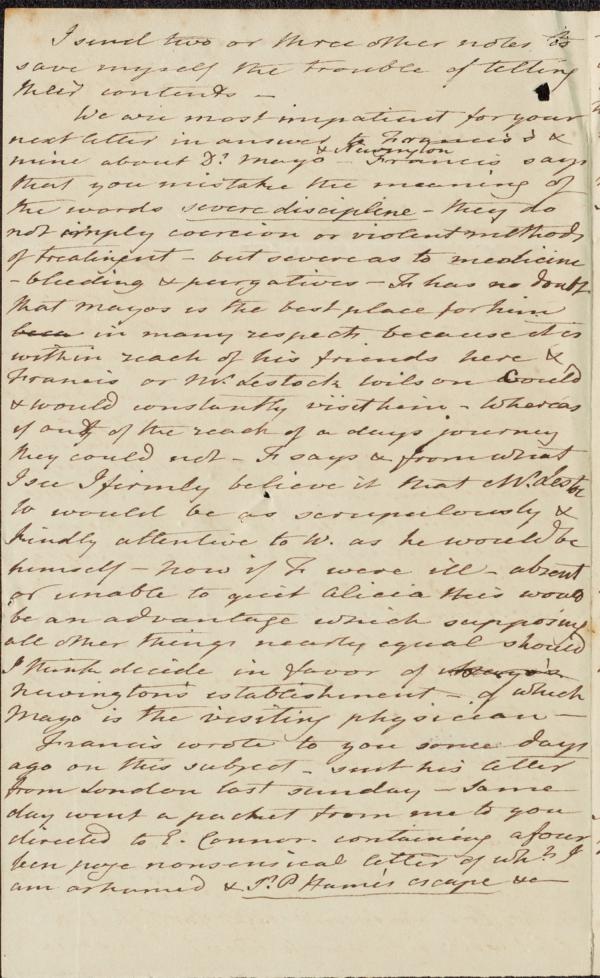 I send two or three other notes to
save myself the trouble of telling
their contents –
We are most impatient for your
next letter in answer to Francis's &
mine about Dr. Mayo & Newington – Francis says
that you mistake the meaning of
the words severe discipline – they do
not imply coercion or violent methods
of treatment – but severe as to medicine
– bleeding & purgatives – F has no doubt
that Mayos is the best place for him
beca in many respects because it is
within reach of his friends here &
Francis or Mr. Lestock Wilson could
& would constantly visit him – Whereas
if out of the reach of a days journey
they could not – F says & from what
I see I firmly believe it that Mr. Lestk
W would be as scrupulously &
kindly attentive to W. as he would be
himself – now if F were ill – absent
or unable to quit Alicia this would
be an advantage which supposing
all other things nearly equal should
I think decide in favor of Mayo's
Newington's establishment – of which
Mayo is the visiting physician –
Francis wrote to you some days
ago on this subject – sent his letter
from London last sunday – Same
day went a packet from me to you
directed to E. Connor. containing a four
teen page nonsensical letter of whh. I
am ashamed & Sr. P Hume's escape &c –